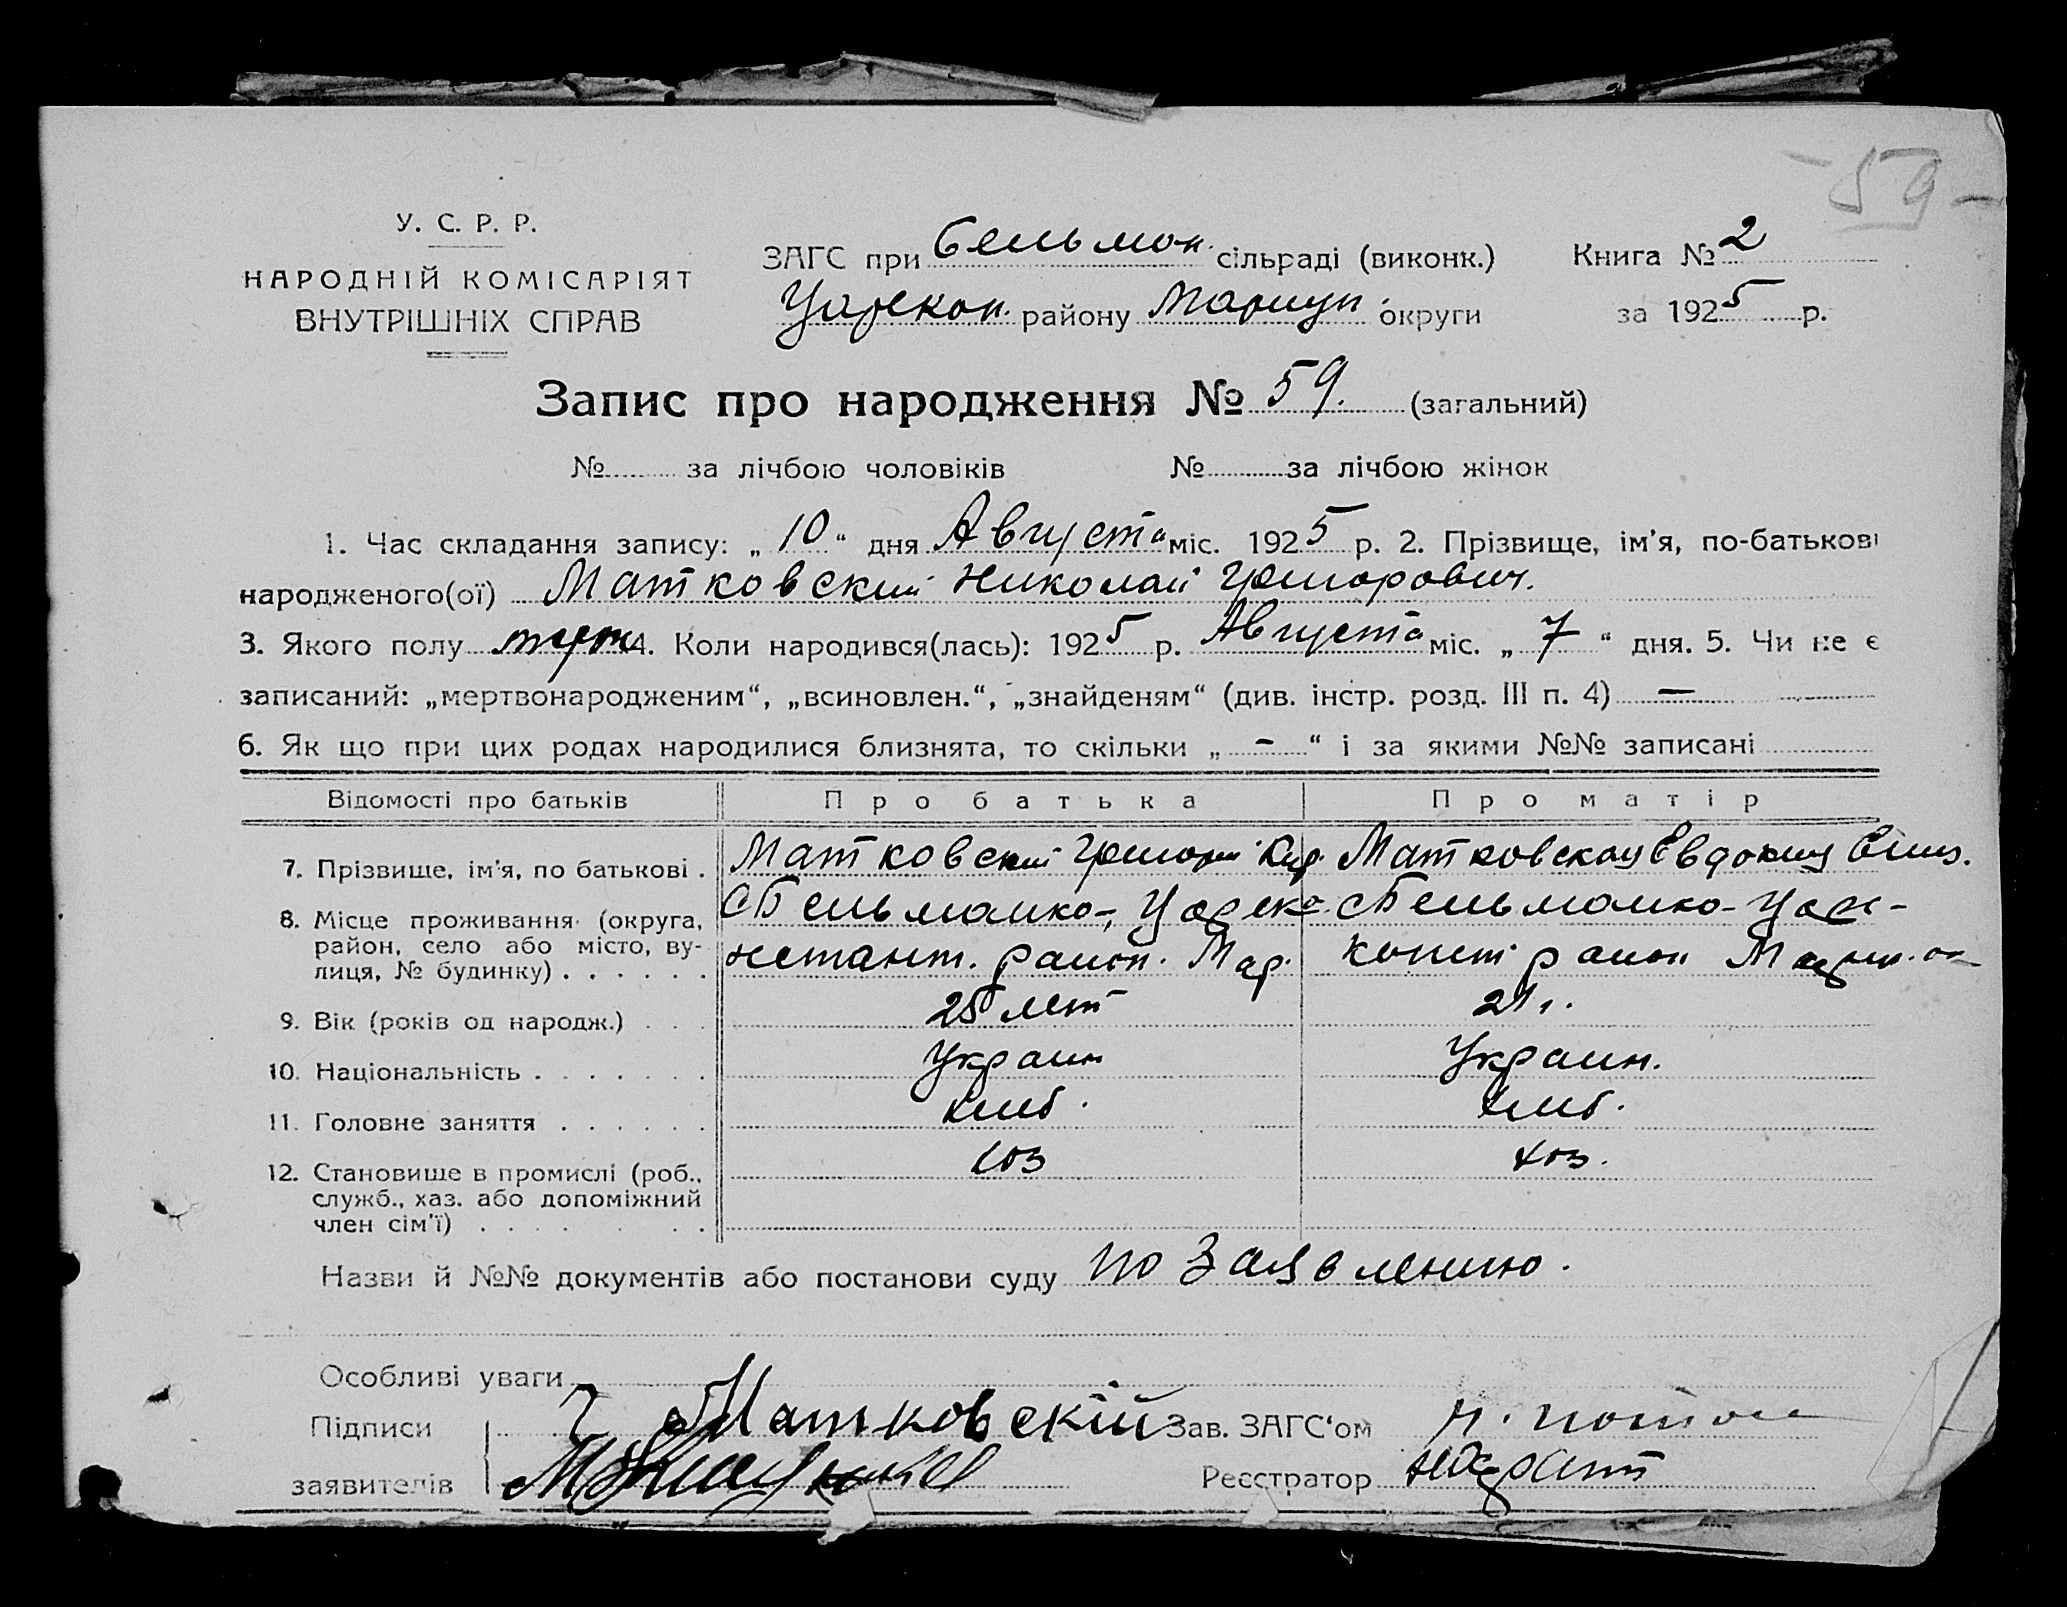 - 59 -
У. С. Р. Р.
НАРОДНІЙ КОМІСАРІЯТ
ВНУТРІШНІХ СПРАВ
ЗАГС при Бельмон. сільраді (виконк.)
Книга № 2
Царекон. району Мариуп. округи
за 1925 р.
Запис про народження № 59. (загальний)
№ за лічбою чоловіків № за лічбою жінок
1. Час складання запису: „ 10 “ дня Августа міс. 1925 р. 2. Прізвище, ім'я, по-батькові
народженого(ої) Матковский Николай Григорович.
3. Якого полу муж 4. Коли народився(лась): 1925 р. Августа міс. „ 7 “ дня. 5. Чи не є
записаний: „мертвонародженим“, „всиновлен.“, „знайденям“ (див. інстр. розд. III п. 4) —
6. Як що при цих родах народилися близнята, то скільки „ - “ і за якими №№ записані
Відомості про батьків Про батька Про матір
7. Прізвище, ім'я, по батькові . Матковский Григорий Кир. Матковская Евдокия
8. Місце проживання (округа, район, село або місто, вулиця, № будинку) . . . . . .
с Бельманко-, Цареконстант. район. Мар.
с Бельманко- Царконст район Мариуп. ок
9. Вік (років од народж.) . . . 25 лет 21 г.
10. Національність . . . . . . . Украин Украин.
11. Головне заняття . . . . . . хлиб. хлиб.
12. Становище в промислі (роб., служб., хаз. або допоміжний член сім'ї) . . . . . . хоз хоз.
Назви й №№ документів або постанови суду по заявлению.
Особливі уваги
Підписи заявителів
Г Матковскій
Зав. ЗАГС'ом
Реєстратор